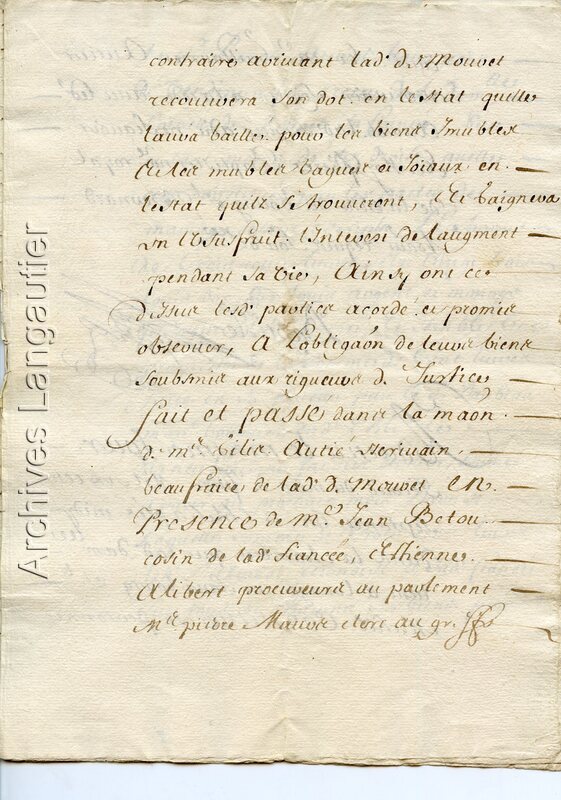 contraire avenant lad. de Mouvet
recouvrera son dot en lestat quelle
laura baille pour les biens Imubles
Et les mubles bagues et Joiaux en
lestat quilz se trouveront, Et baignera
en l'Ususfruit l'Interest de laugment
pendant sa vie, Ainsy ont ce
dessus lesd. parties acordé et promis
observer, A l'obliga͠on de leurs biens
soubsmis aux rigueurs de Justice
fait et passe dans la ma͠on
de mr. Autié Escrivain
beaufraire de lad. de Mouvet En
Presence de me. Jean Betou
cosin de lad. fiancée Estienne
Alibert procureurs au parlement
Mre. pierre Maurs clerc au gr.
Archives Langautier